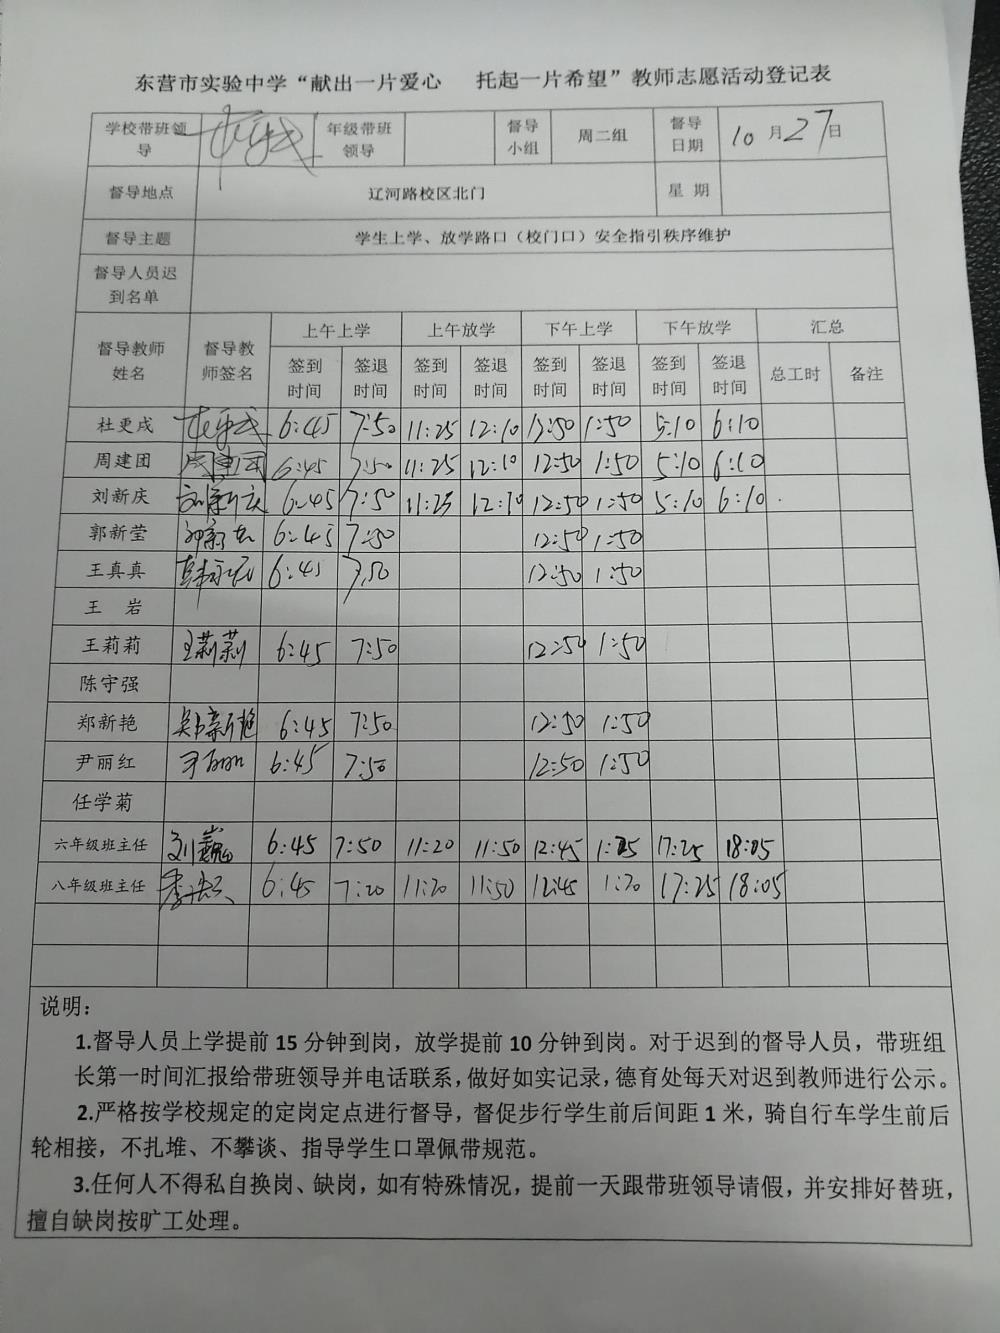 东营市实验中学“献出一片爱心 托起一片希望”教师志愿活动登记表
学校带班领导 年级带班领导 督导小组 周二组 督导日期 10月27日
督导地点 辽河路校区北门 星期
督导主题 学生上学、放学路口（校门口）安全指引秩序维护
督导人员迟到名单
督导教师姓名 督导教师签名 上午上学 上午放学 下午上学 下午放学 汇总
签到时间 签退时间 签到时间 签退时间 签到时间 签退时间 签到时间 签退时间 总工时 备注
杜更成 6:45 7:50 11:25 12:10 12:50 1:50 5:10 6:10
周建团 周建团 6:45 7:50 11:25 12:10 12:50 1:50 5:10 6:10
刘新庆 刘新庆 6:45 7:50 11:25 12:10 12:50 1:50 5:10 6:10
郭新莹 6:45 7:50 12:50 1:50
王真真 6:45 7:50 12:50 1:50
王 岩
王莉莉 王莉莉 6:45 7:50 12:50 1:50
陈守强
郑新艳 郑新艳 6:45 7:50 12:50 1:50
尹丽红 尹丽红 6:45 7:50 12:50 1:50
任学菊
六年级班主任 刘巍 6:45 7:50 11:20 11:50 12:45 17:25 18:05
八年级班主任 6:45 7:20 11:20 11:50 12:45 1:20 17:25 18:05
说明：
1.督导人员上学提前15分钟到岗，放学提前10分钟到岗。对于迟到的督导人员，带班组
长第一时间汇报给带班领导并电话联系，做好如实记录，德育处每天对迟到教师进行公示。
2.严格按学校规定的定岗定点进行督导，督促步行学生前后间距1米，骑自行车学生前后
轮相接，不扎堆、不攀谈、指导学生口罩佩带规范。
3.任何人不得私自换岗、缺岗，如有特殊情况，提前一天跟带班领导请假，并安排好替班，
擅自缺岗按旷工处理。